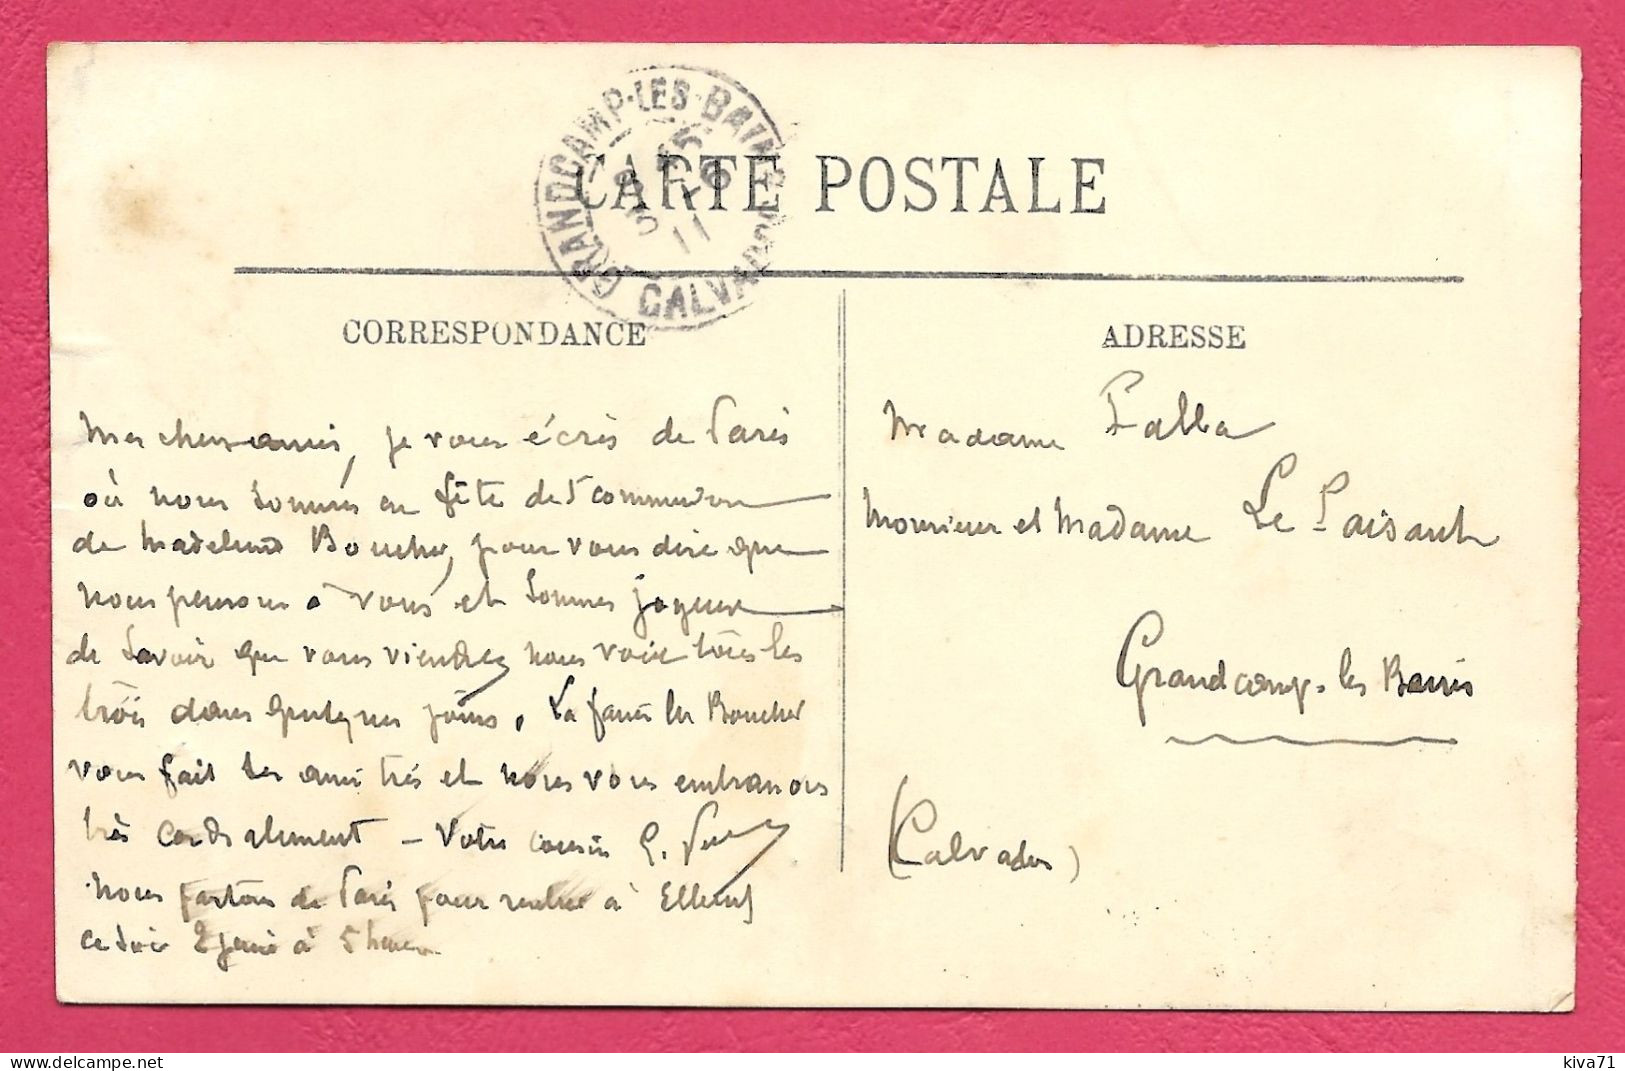 GRANDCAMP-LES-BAINS
CALVADOS
CARTE POSTALE
CORRESPONDANCE
ADRESSE
Mes chers amis, je vous écris de Paris
où nous sommes en fête de communion
de Madeleine Boucher, pour vous dire que
nous pensons à vous et sommes joyeux
de savoir que vous viendrez nous voir tous les
trois dans quelques jours. La famille Boucher
vous fait ses amitiés et nous vous embrassons
très cordialement - Votre cousin
nous partons de Paris pour rentrer à Elbeuf
ce soir 2 juin à 5 heures
Madame Palla
Monsieur et Madame Le Paisant
Grandcamp-les Bains
(Calvados)
kiva71